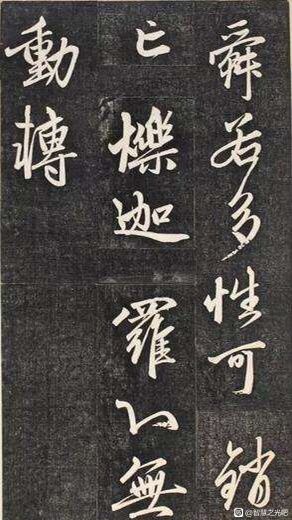 舜若多性可銷
亡爍迦羅心無
動轉
@智慧之光吧